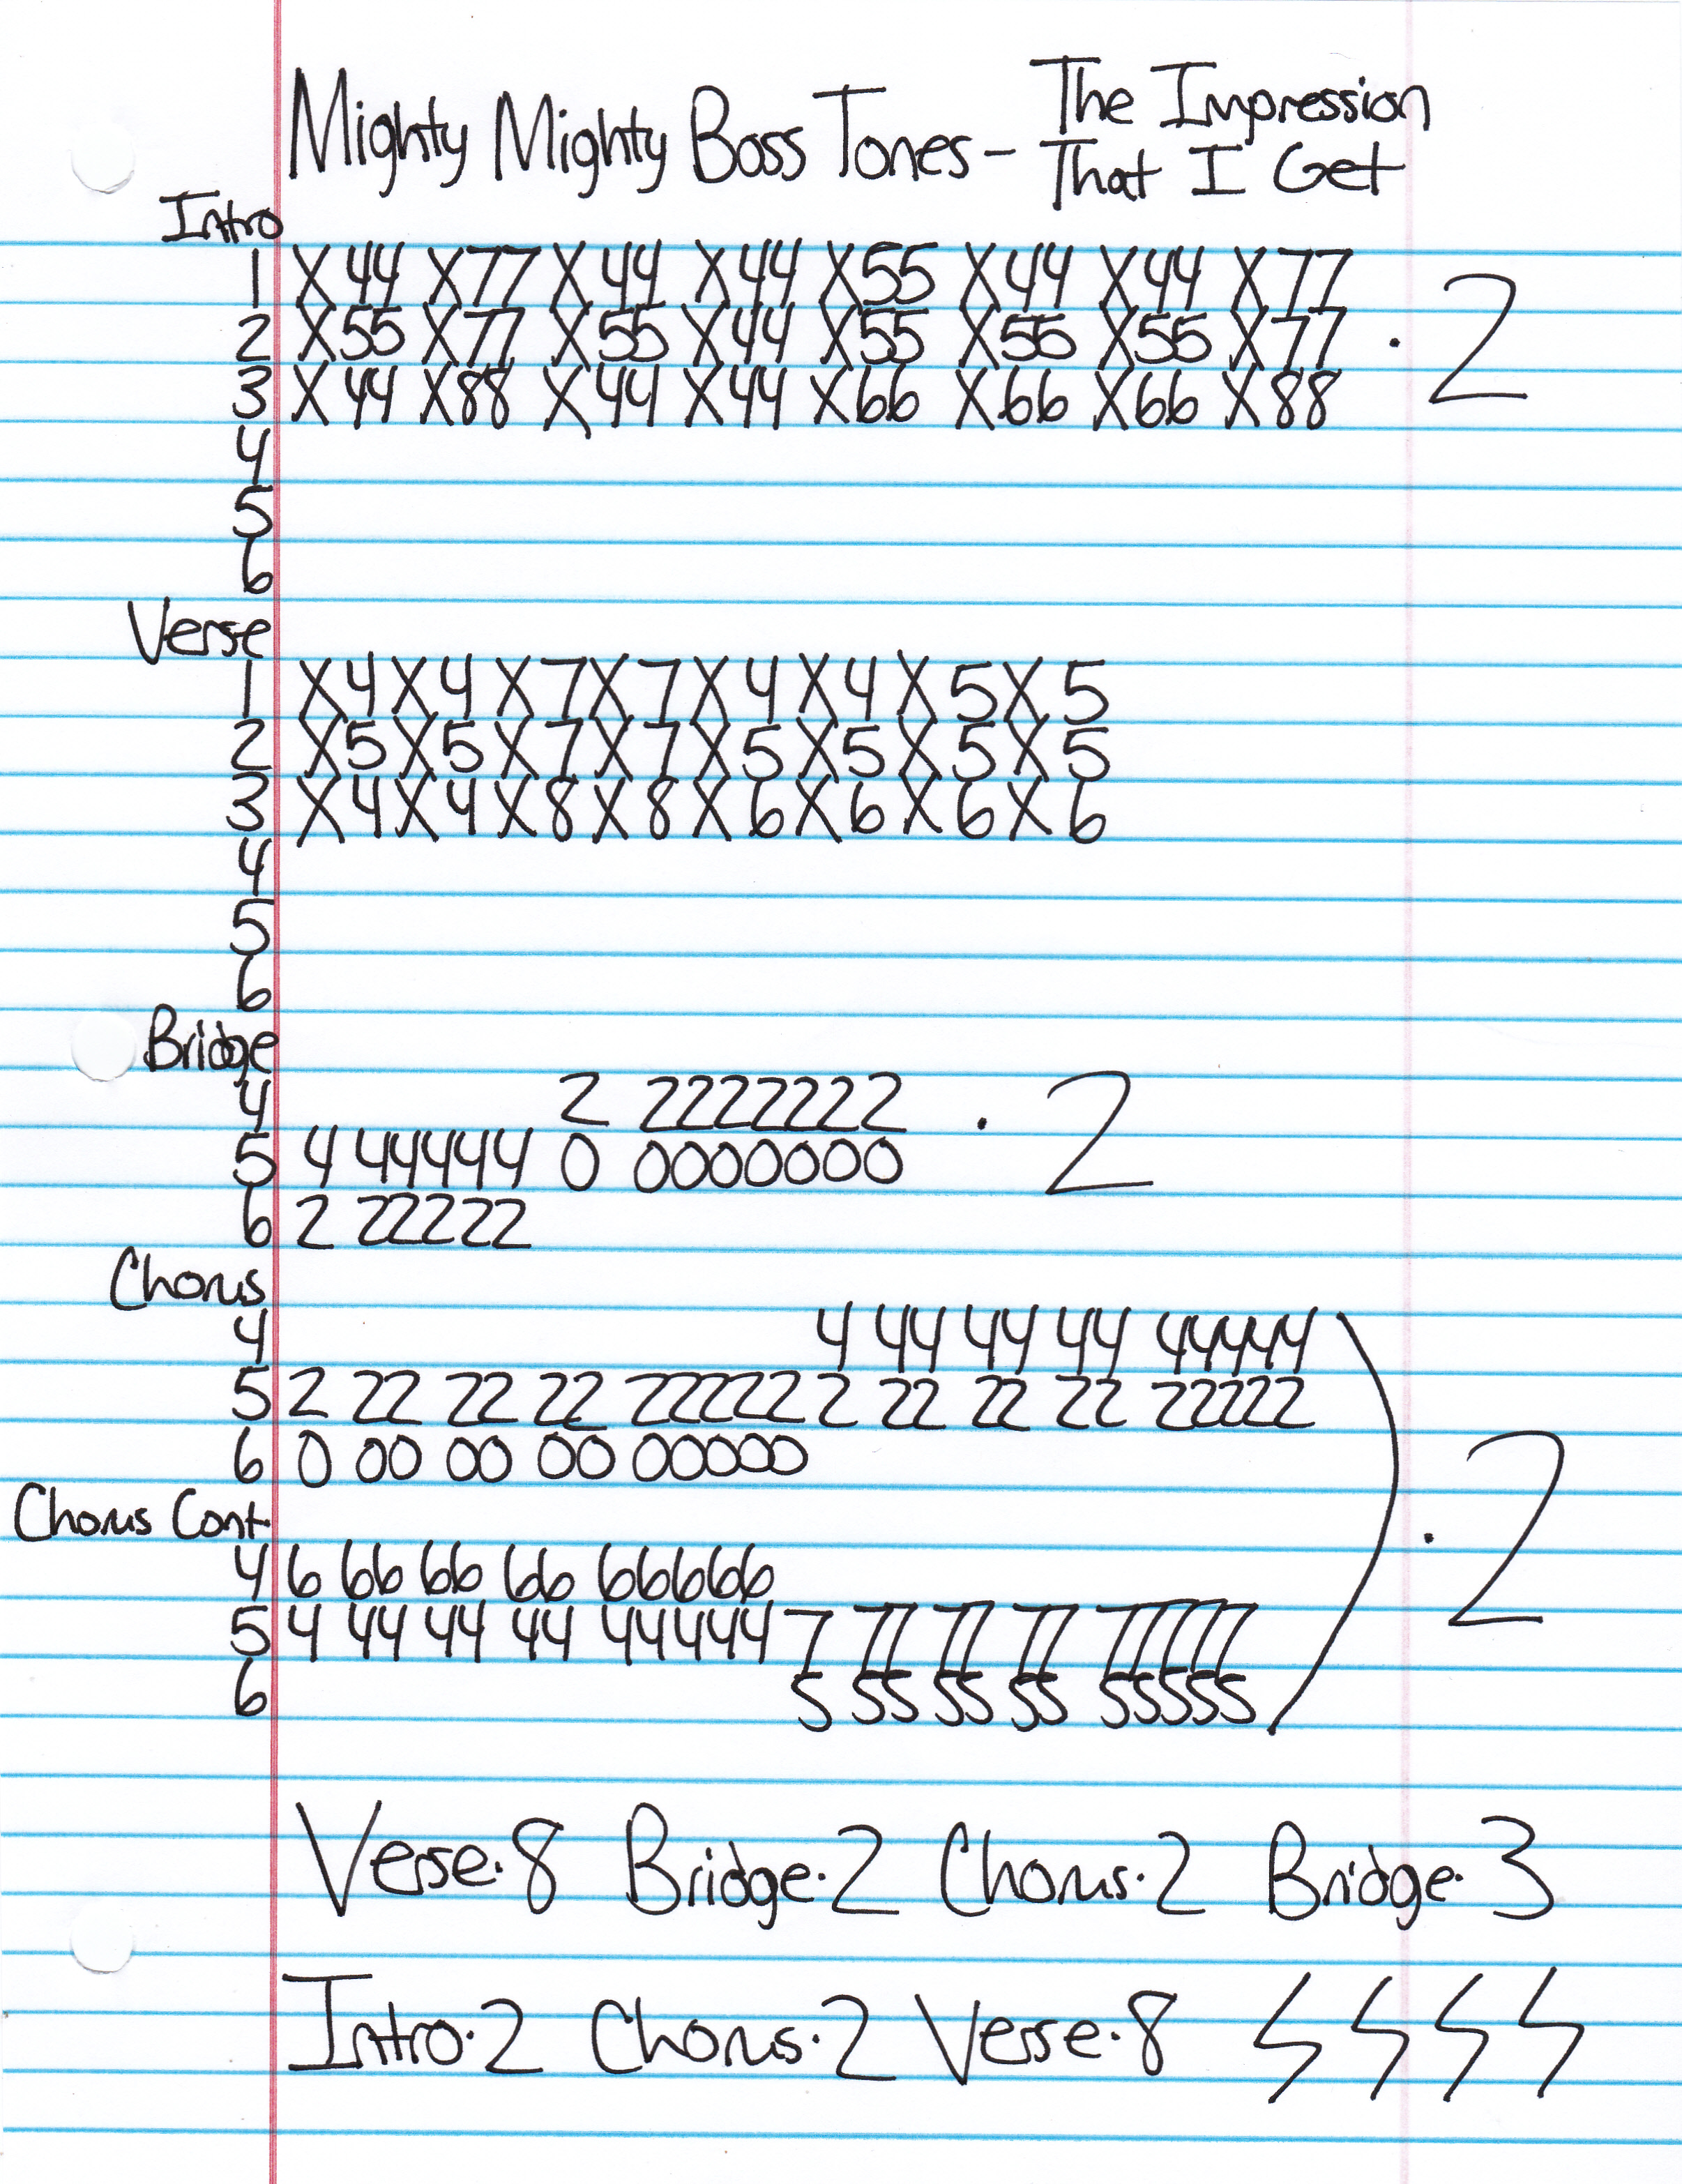 Mighty Mighty Boss Tones - The Impression
That I Get
Intro
1 X44 X77 X44 X44 X55 X44 X44 X77
2 X55 X77 X55 X44 X55 X55 X55 X77 · 2
3 X44 X88 X44 X44 X66 X66 X66 X88
4
5
6
Verse
1 X4X4X7X7X4X4X5X5
2 X5X5X7X7X5X5X5X5
3 X4X4X8X8X6X6X6X6
4
5
6
Bridge
4 2 2222222 · 2
5 4 44444 0 0000000
6 2 22222
Chorus
4 4 44 44 44 44444
5 2 22 22 22 22222 2 22 22 22 22222
6 0 00 00 00 00000
Chorus Cont.
4 6 66 66 66 66666 ) · 2
5 4 44 44 44 44444 7 77 77 77 77777
6 5 55 55 55 55555
Verse·8 Bridge·2 Chorus·2 Bridge·3
Intro·2 Chorus·2 Verse·8